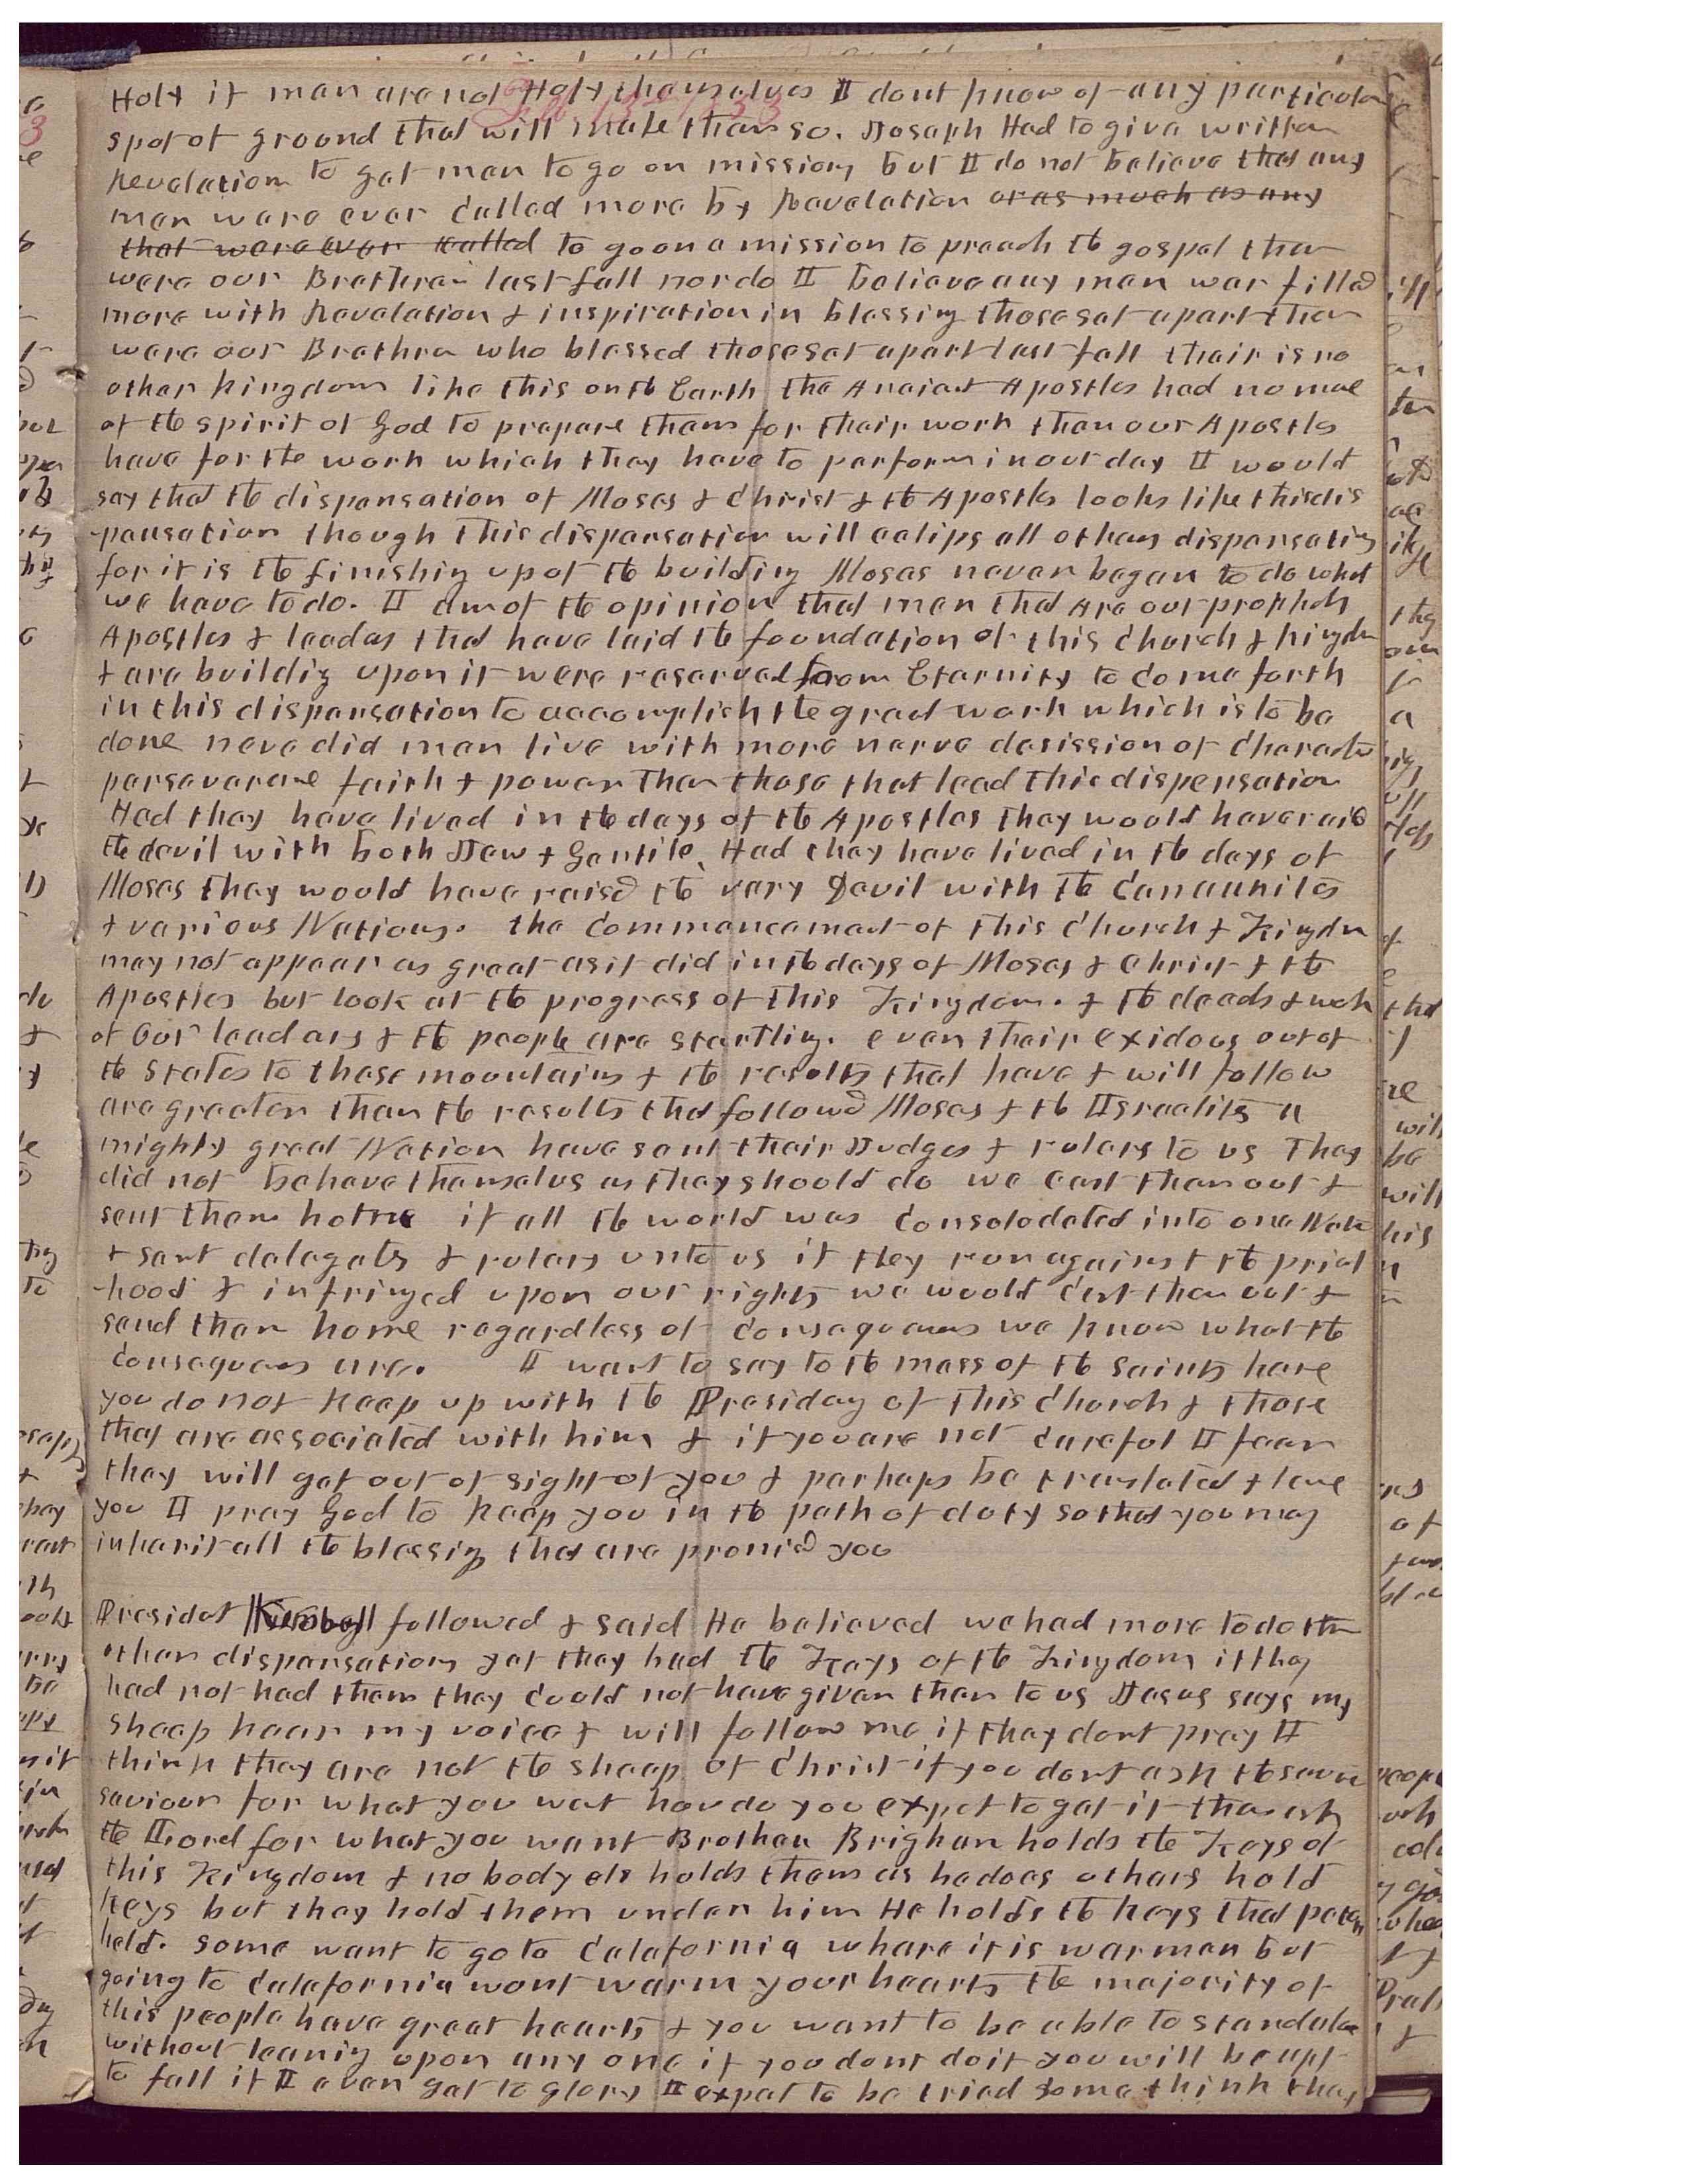 Feb. 13th 1853
Holy if men are not Holy themselves I dont know of any particular
spot of ground that will make them so. Joseph Had to give written
Revelation to get men to go on mission but I do not believe that any
men ware ever called more by Revelation or as much as any
that were ever called to go on a mission to preach the gospel then
were our Brethren last fall nor do I believe any men war filled
more with Revelation & inspiration in blessing those set apart then
were our Brethrn who blessed those set apart last fall their is no
other Kingdom like this on the Earth the Anciant Apostles had no more
of the spirit of God to prepare them for their work than our Apostles
have for the work which they have to perform in our day I would
say that the dispensation of Moses & Christ & the Apostles looks like this dis
-pensation though this dispensation will eclips all others dispensations
for it is the finishing up of the building Moses never began to do what
we have to do. I am of the opinion that men that Are our prophets
Apostles & leaders that have laid the foundation of this Church & kingdom
& are building upon it were reserved from Eternity to come forth
in this dispensation to accomplish the great work which is to be
done never did men live with more nerve desission of character
perseverance faith & power then those that lead this dispensation
Had they have lived in the days of the Apostles they would have raisd
the devil with both Jew & Gentile, Had they have lived in the days of
Moses they would have raisd the very Devil with the Canaanites
& various Nations. the Commencement of this Church & Kingdom
may not appear as great as it did in the days of Moses & Christ & the
Apostles but look at the progress of this Kingdom. & the deeds & work
of Our leaders & the people are startling. even their exidous out of
the States to these mountains & the results that have & will follow
are greater than the results that followd Moses & the Israelits a
mighty great Nation have sent their Judges & rulers to us They
did not behave themselvs as they should do we cast them out &
sent them home if all the world was Consolodated into one Nation
& sent delegates & rulers unto us if they run against the priest
-hood & infringed upon our rights we would Cast them out &
send them home regardless of Consequences we know what the
Consequences are. I want to say to the mass of the Saints here
you do not keep up with the Presidecy of this Church & those
that are associated with him & if you are not Careful I fear
they will get out of sight of you & perhaps be translated & leave
you I pray God to keep you in the path of duty so that you may
inherit all the blessings that are promisd you
Presidet Kimball followed & said He believed we had more to do then
other dispensations yet they had the Keys of the Kingdom if they
had not had them they Could not have given them to us Jesus says my
sheep hear my voice & will follow me if they dont pray I
think they are not the sheep of Christ if you dont ask the
saviour for what you wat how do you expet to get it then ask
the Lord for what you want Brother Brigham holds the Keys of
this Kingdom & no body els holds them as he does others hold
keys but they hold them under him He holds the keys that peter
held. some want to go to Calafornia where it is warmer but
going to Calafornia wont warm your hearts the majority of
this people have great hearts & you want to be able to stand alone
without leaning upon any one if you dont do it you will be apt
to fall if I ever get to glory I expet to be tried some think they